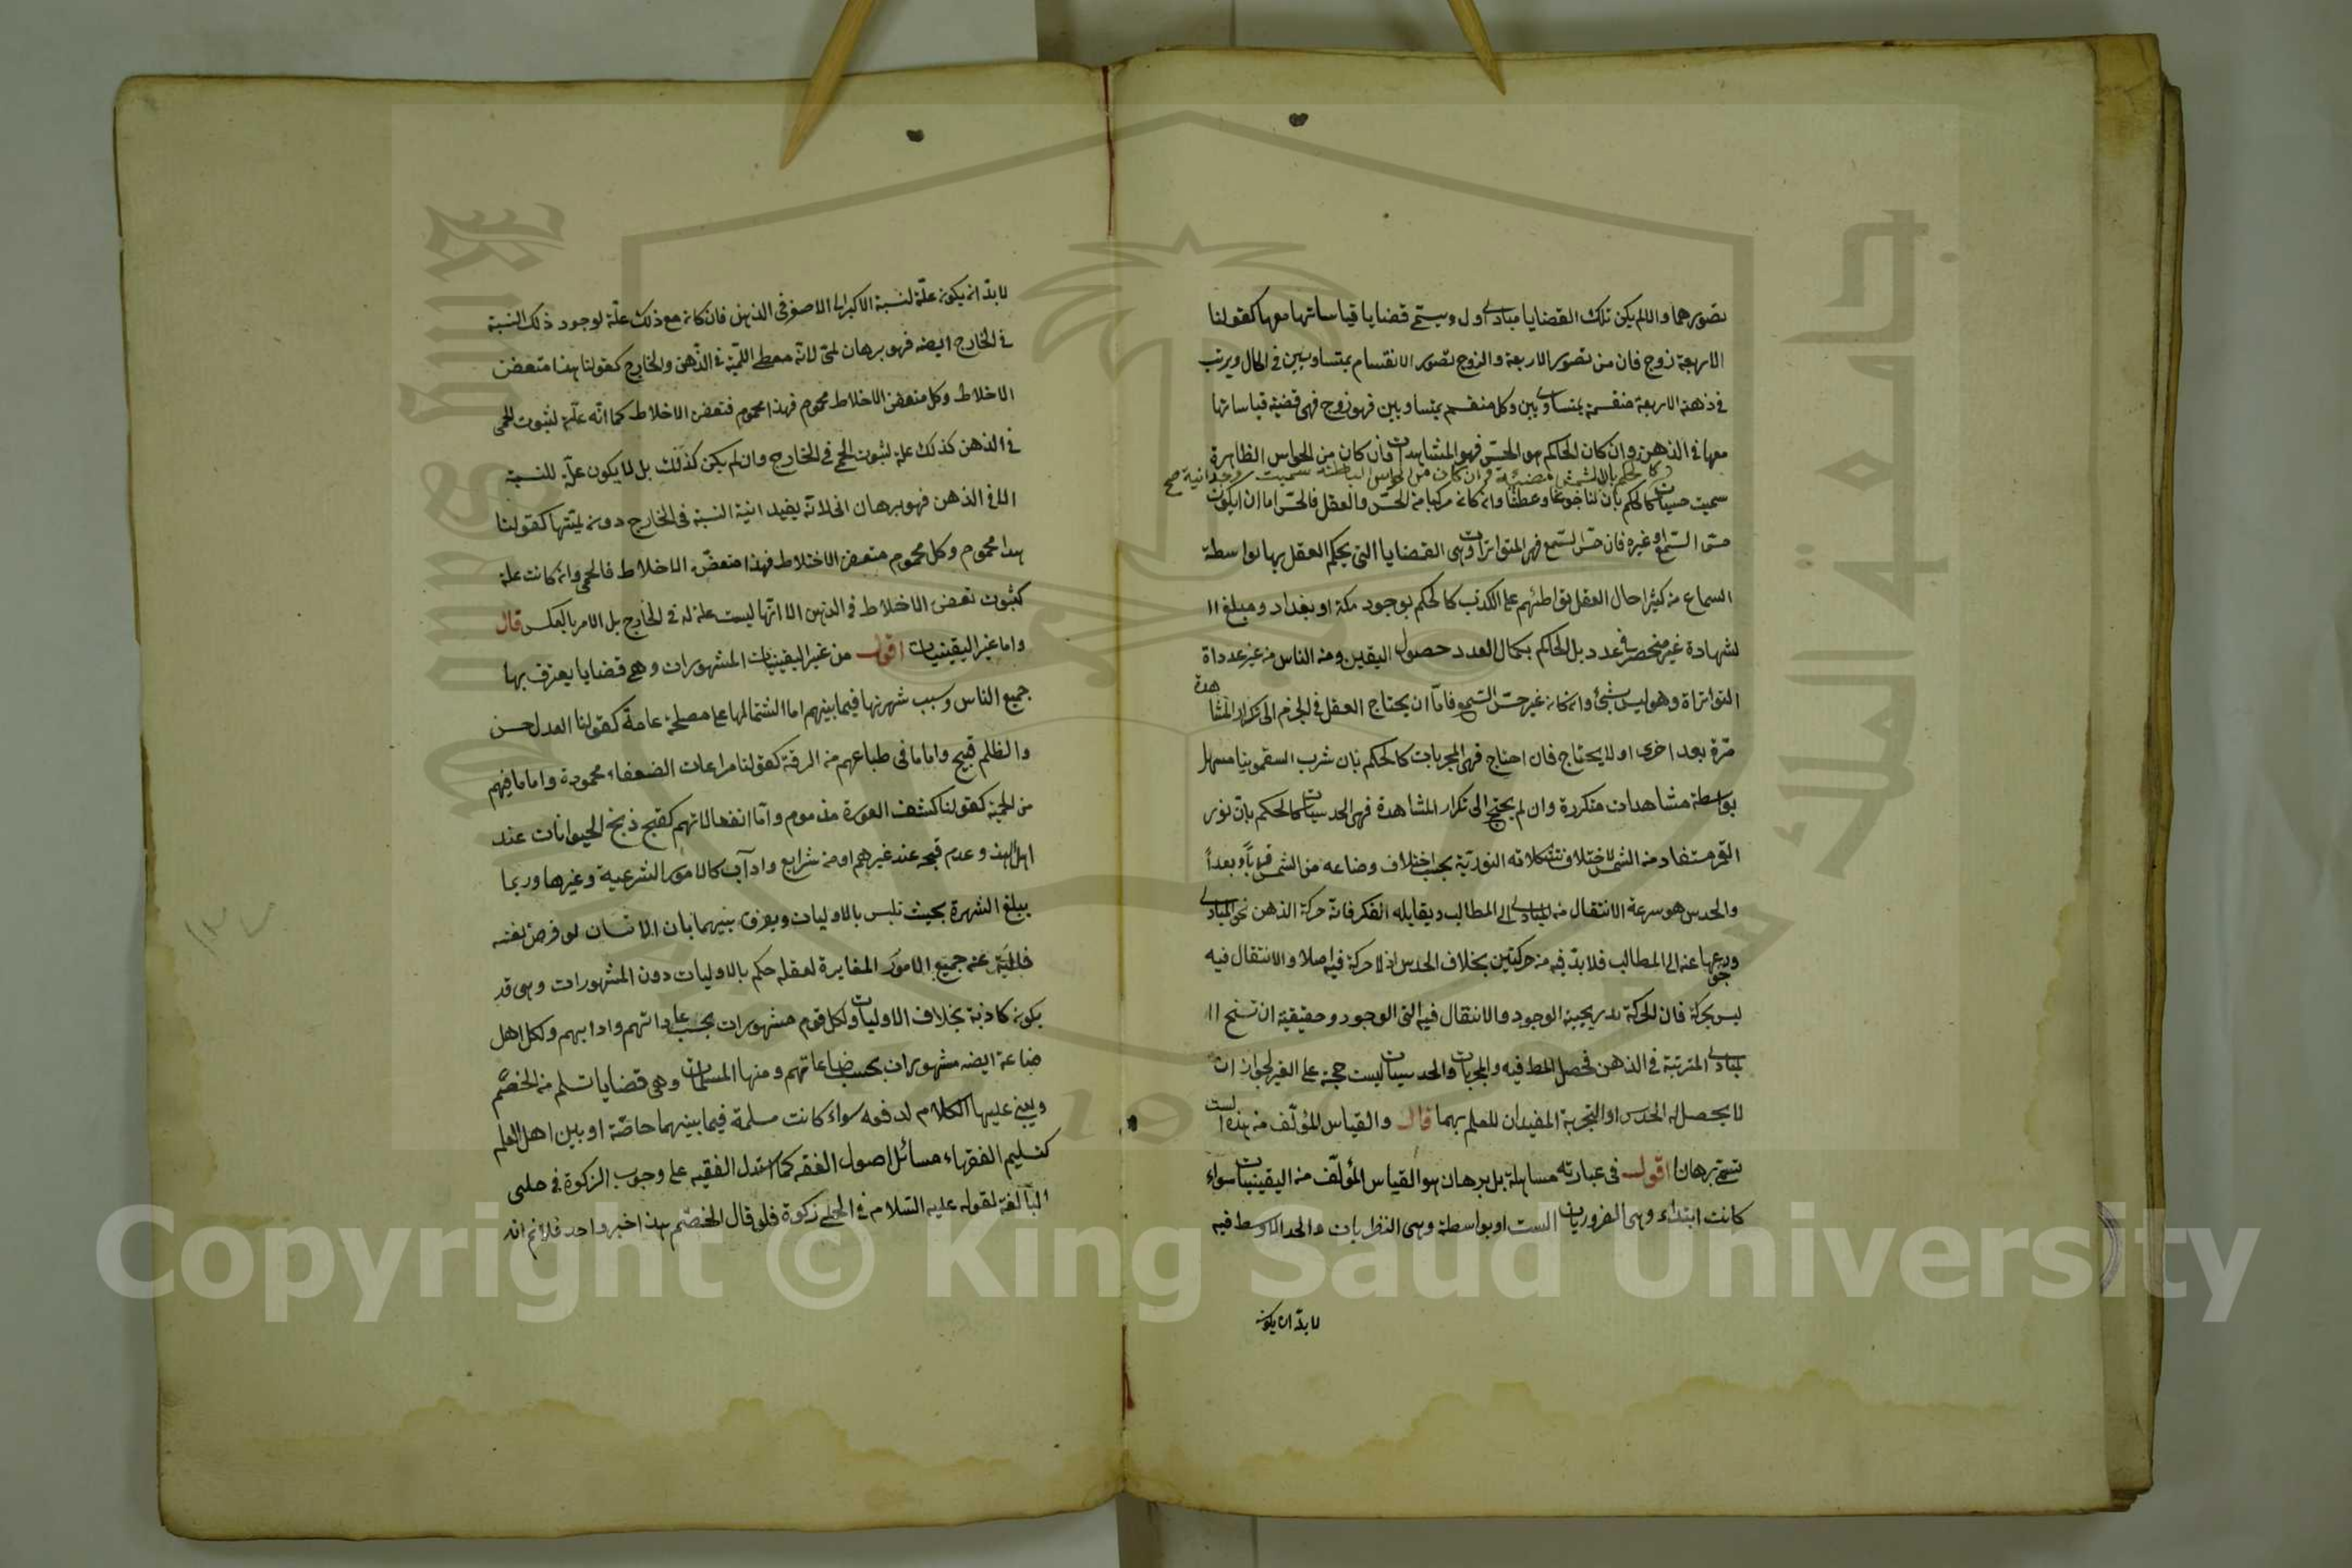 تصورهما والا لم يكن تلك القضايا مبادى اول ويسمى قضايا قياساتها معها كقولنا
الاربعة زوج فان من تصور الاربعة والزوج تصور الانقسام بمتساويين فى الحال ويرتب
فى ذهنه الاربعة منقسمة بمتساويين وكل منقسم بمتساويين فهو زوج فهى قضية قياساتها
معها فى الذهن وان كان الحاكم هو الحس فهو المشاهدات فان كان من الحواس الظاهرة
كالحكم بان الشمس مضيئة وان كان من الحواس الباطنة سميت وجدانية صح
سميت حسيات كالحكم بان لنا خوفا وعطشا وان كان مركبا من الحس والعقل فالحس اما ان يكون
حس السمع او غيره فان حس السمع فهى المتواترات وهى القضايا التى يحكم العقل بها بواسطة
السماع من كثير احال العقل تواطئهم على الكذب كالحكم بوجود مكة او بغداد ومبلغ ا
لشهادة غير منحصر فى عدد بل الحاكم بكمال العدد حصول اليقين ومن الناس من عين عدداة
التواتراة وهو ليس بشئ وان كان غير حس السمع فاما ان يحتاج العقل فى الجزم الى تكرار المشاهدة
مرة بعد اخرى او لا يحتاج فان احتاج فهى المجربات كالحكم بان شرب السقمونيا مسهل
بواسطة مشاهدات متكررة وان لم يحتج الى تكرار المشاهدة فهى الحدسيات كالحكم بان نور
القمر مستفاد من الشمس لاختلاف تشكلاته النورية بحسب اختلاف وضاعه من الشمس قربا وبعدا
والحدس هو سرعة الانتقال من المبادى الى المطالب ويقابله الفكر فانه حركة الذهن نحو المبادى
ورجوعها عنه الى المطالب فلا بد فيه من حركتين بخلاف الحدس اذ لا حركة فيه اصلا والانتقال فيه
ليس بحركة فان الحركة تدريجية الوجود والانتقال فيه انى الوجود وحقيقته ان تسنح ا
لمبادى المترتبة فى الذهن فحصل المط فيه والمجربات والحدسيات ليست حجة على الغير لجواز ان
لا يحصل له الحدس او التجربة المفيدان للعلم بهما قال والقياس المؤلف من هذه الست
تسمى برهانا اقول فى عبارته مساهلة بل برهان هو القياس المؤلف من اليقينيات سواء
كانت ابتداء وهى الضروريات الست او بواسطة وهى النظريات والحد الاوسط فيه
لا بد ان يكون
لا بد ان يكون علة لنسبة الاكبر الى الاصغر فى الذهن فان كان مع ذلك علة لوجود ذلك النسبة
فى الخارج ايضه فهو برهان لمى لانه معطى اللمية فى الذهن والخارج كقولنا هذا متعفن
الاخلاط وكل متعفن الاخلاط محموم فهذا محموم فتعفن الاخلاط كما انه علة لثبوت الحمى
فى الذهن كذلك علة لثبوت الحمى فى الخارج وان لم يكن كذلك بل لا يكون علة للنسبة
الا فى الذهن فهو برهان انى لانه يفيد انية النسبة فى الخارج دون لميتها كقولنا
هذا محموم وكل محموم متعفن الاختلاط فهذا متعفن الاخلاط فالحمى وان كانت علة
كثبوت تعفن الاخلاط فى الذهن الا انها ليست علة له فى الخارج بل الامر بالعكس قال
واما غير اليقينيات اقول من غير اليقينيات المشهورات وهى قضايا يعترف بها
جميع الناس وسبب شهرتها فيما بينهم اما اشتمالها على مصلحة عامة كقولنا العدل حسن
والظلم قبيح واما ما فى طباعهم من الرقة كقولنا مراعات الضعفاء محمودة واما ما فيهم
من الحمية كقولنا كشف العورة مذموم واما انفعالاتهم كقبح ذبح الحيوانات عند
اهل الهند وعدم قبحه عند غيرهم او من شرايع وادآب كالامور الشرعية وغيرها وربما
يبلغ الشهرة بحيث تلبس بالاوليات ويفرق بينهما بان الانسان لو فرض نفسه
خالية عنه جميع الامور المغايرة لعقله حكم بالاوليات دون المشهورات وهى قد
يكون كاذبة بخلاف الاوليات ولكل قوم مشهورات بحسب عاداتهم وادابهم ولكل اهل
صناعة ايضه مشهورات بحسب صناعاتهم ومنها المسلمات وهى قضايا تسلم من الخصم
ويبنى عليها الكلام لدفعه سواء كانت مسلمة فيما بينهما خاصة او بين اهل العلم
كتسليم الفقهاء مسائل اصول الفقه كما استدل الفقيه على وجوب الزكوة فى حلى
البالغة لقوله عليه السلام فى الحلى زكوة فلو قال الخصم هذا خبر واحد فلا نم انه
جامعة الملك سعود
King Saud University
1957
Copyright © King Saud University